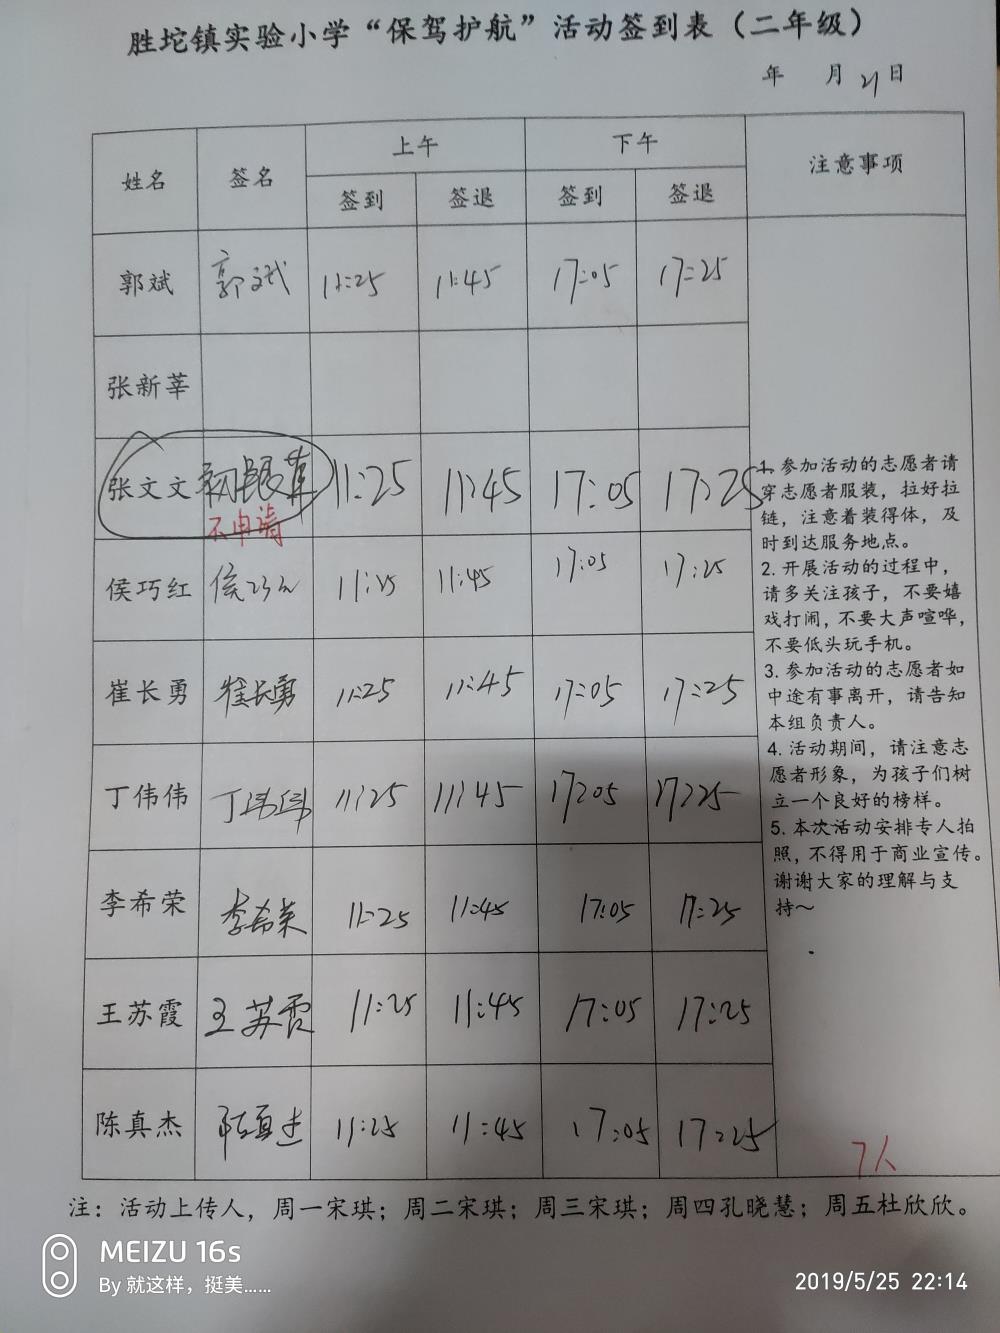 胜坨镇实验小学“保驾护航”活动签到表（二年级）
年 月 21 日
姓名 签名 上午 下午 注意事项
签到 签退 签到 签退
郭斌 郭斌 11:25 11:45 17:05 17:25
张新莘
张文文 11:25 11:45 17:05 17:25
不申请
侯巧红 侯巧红 11:25 11:45 17:05 17:25
崔长勇 崔长勇 11:25 11:45 17:05 17:25
丁伟伟 丁伟伟 11:25 11:45 17:05 17:25
李希荣 李希荣 11:25 11:45 17:05 17:25
王苏霞 王苏霞 11:25 11:45 17:05 17:25
陈真杰 陈真杰 11:25 11:45 17:05 17:25
1. 参加活动的志愿者请
穿志愿者服装，拉好拉
链，注意着装得体，及
时到达服务地点。
2. 开展活动的过程中，
请多关注孩子，不要嬉
戏打闹，不要大声喧哗，
不要低头玩手机。
3. 参加活动的志愿者如
中途有事离开，请告知
本组负责人。
4. 活动期间，请注意志
愿者形象，为孩子们树
立一个良好的榜样。
5. 本次活动安排专人拍
照，不得用于商业宣传。
谢谢大家的理解与支
持～
7人
注：活动上传人，周一宋琪；周二宋琪；周三宋琪；周四孔晓慧；周五杜欣欣。
MEIZU 16s
By 就这样，挺美......
2019/5/25 22:14